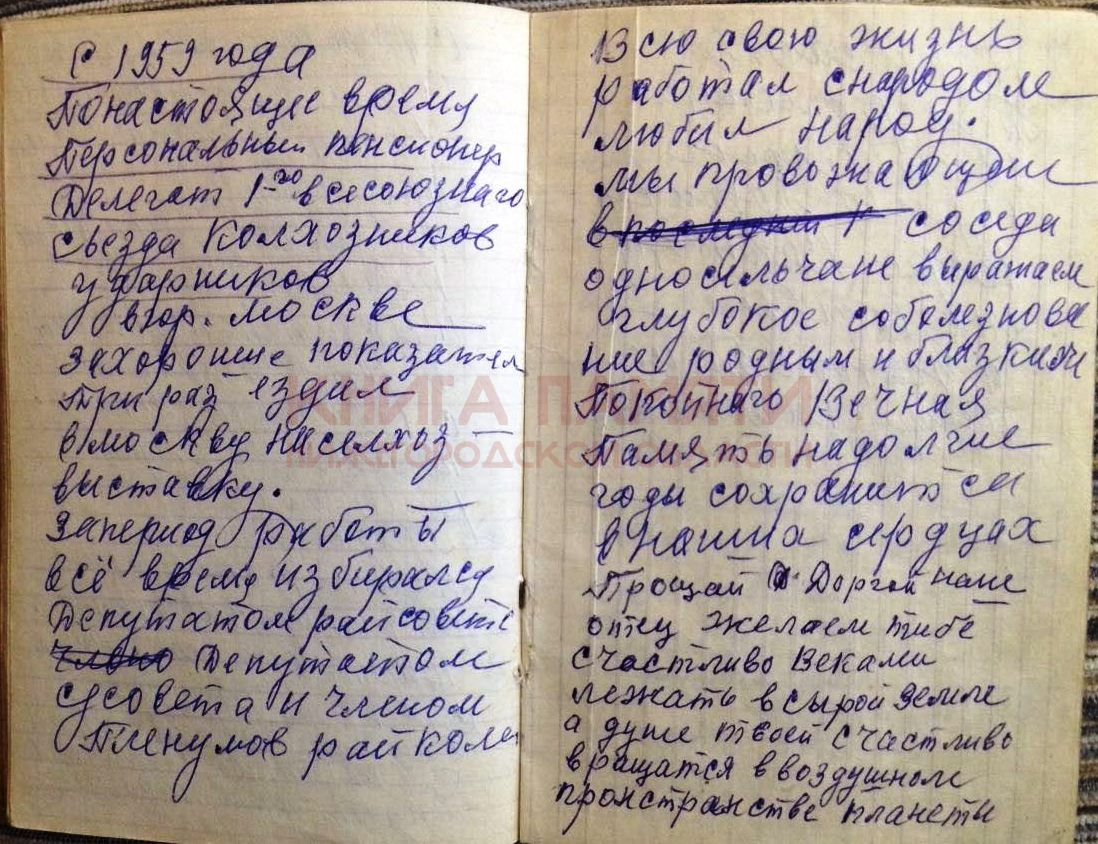 С 1959 года
Понастоящее время
Персональный пенсионер
Делегат 1-го всесоюзнаго
сьезда колхозников
ударников
в гор. Москве
захорошие показател
Три раз ездил
вмоскву населхоз –
выставку.
Запериод работы
всё время избирался
Депутатом райсовета
Депутатом
с/совета и членом
Пленумов райкома
Всю свою жизнь
работал снародом
любил народ.
мы провожая
в последний соседа
односельчане выражаем
глубокое соболезнова
ние родным и близким
Покойнаго Вечная
Память надолгие
годы сохранится
внаших сердцах
Прощай Дорогой наш
отец желаем тибе
счастливо Веками
лежать в сырой земле
а душе твоей счастливо
вращатся в воздушном
пространстве планеты
КНИГА ПАМЯТИ
НИЖЕГОРОДСКОЙ ОБЛАСТИ